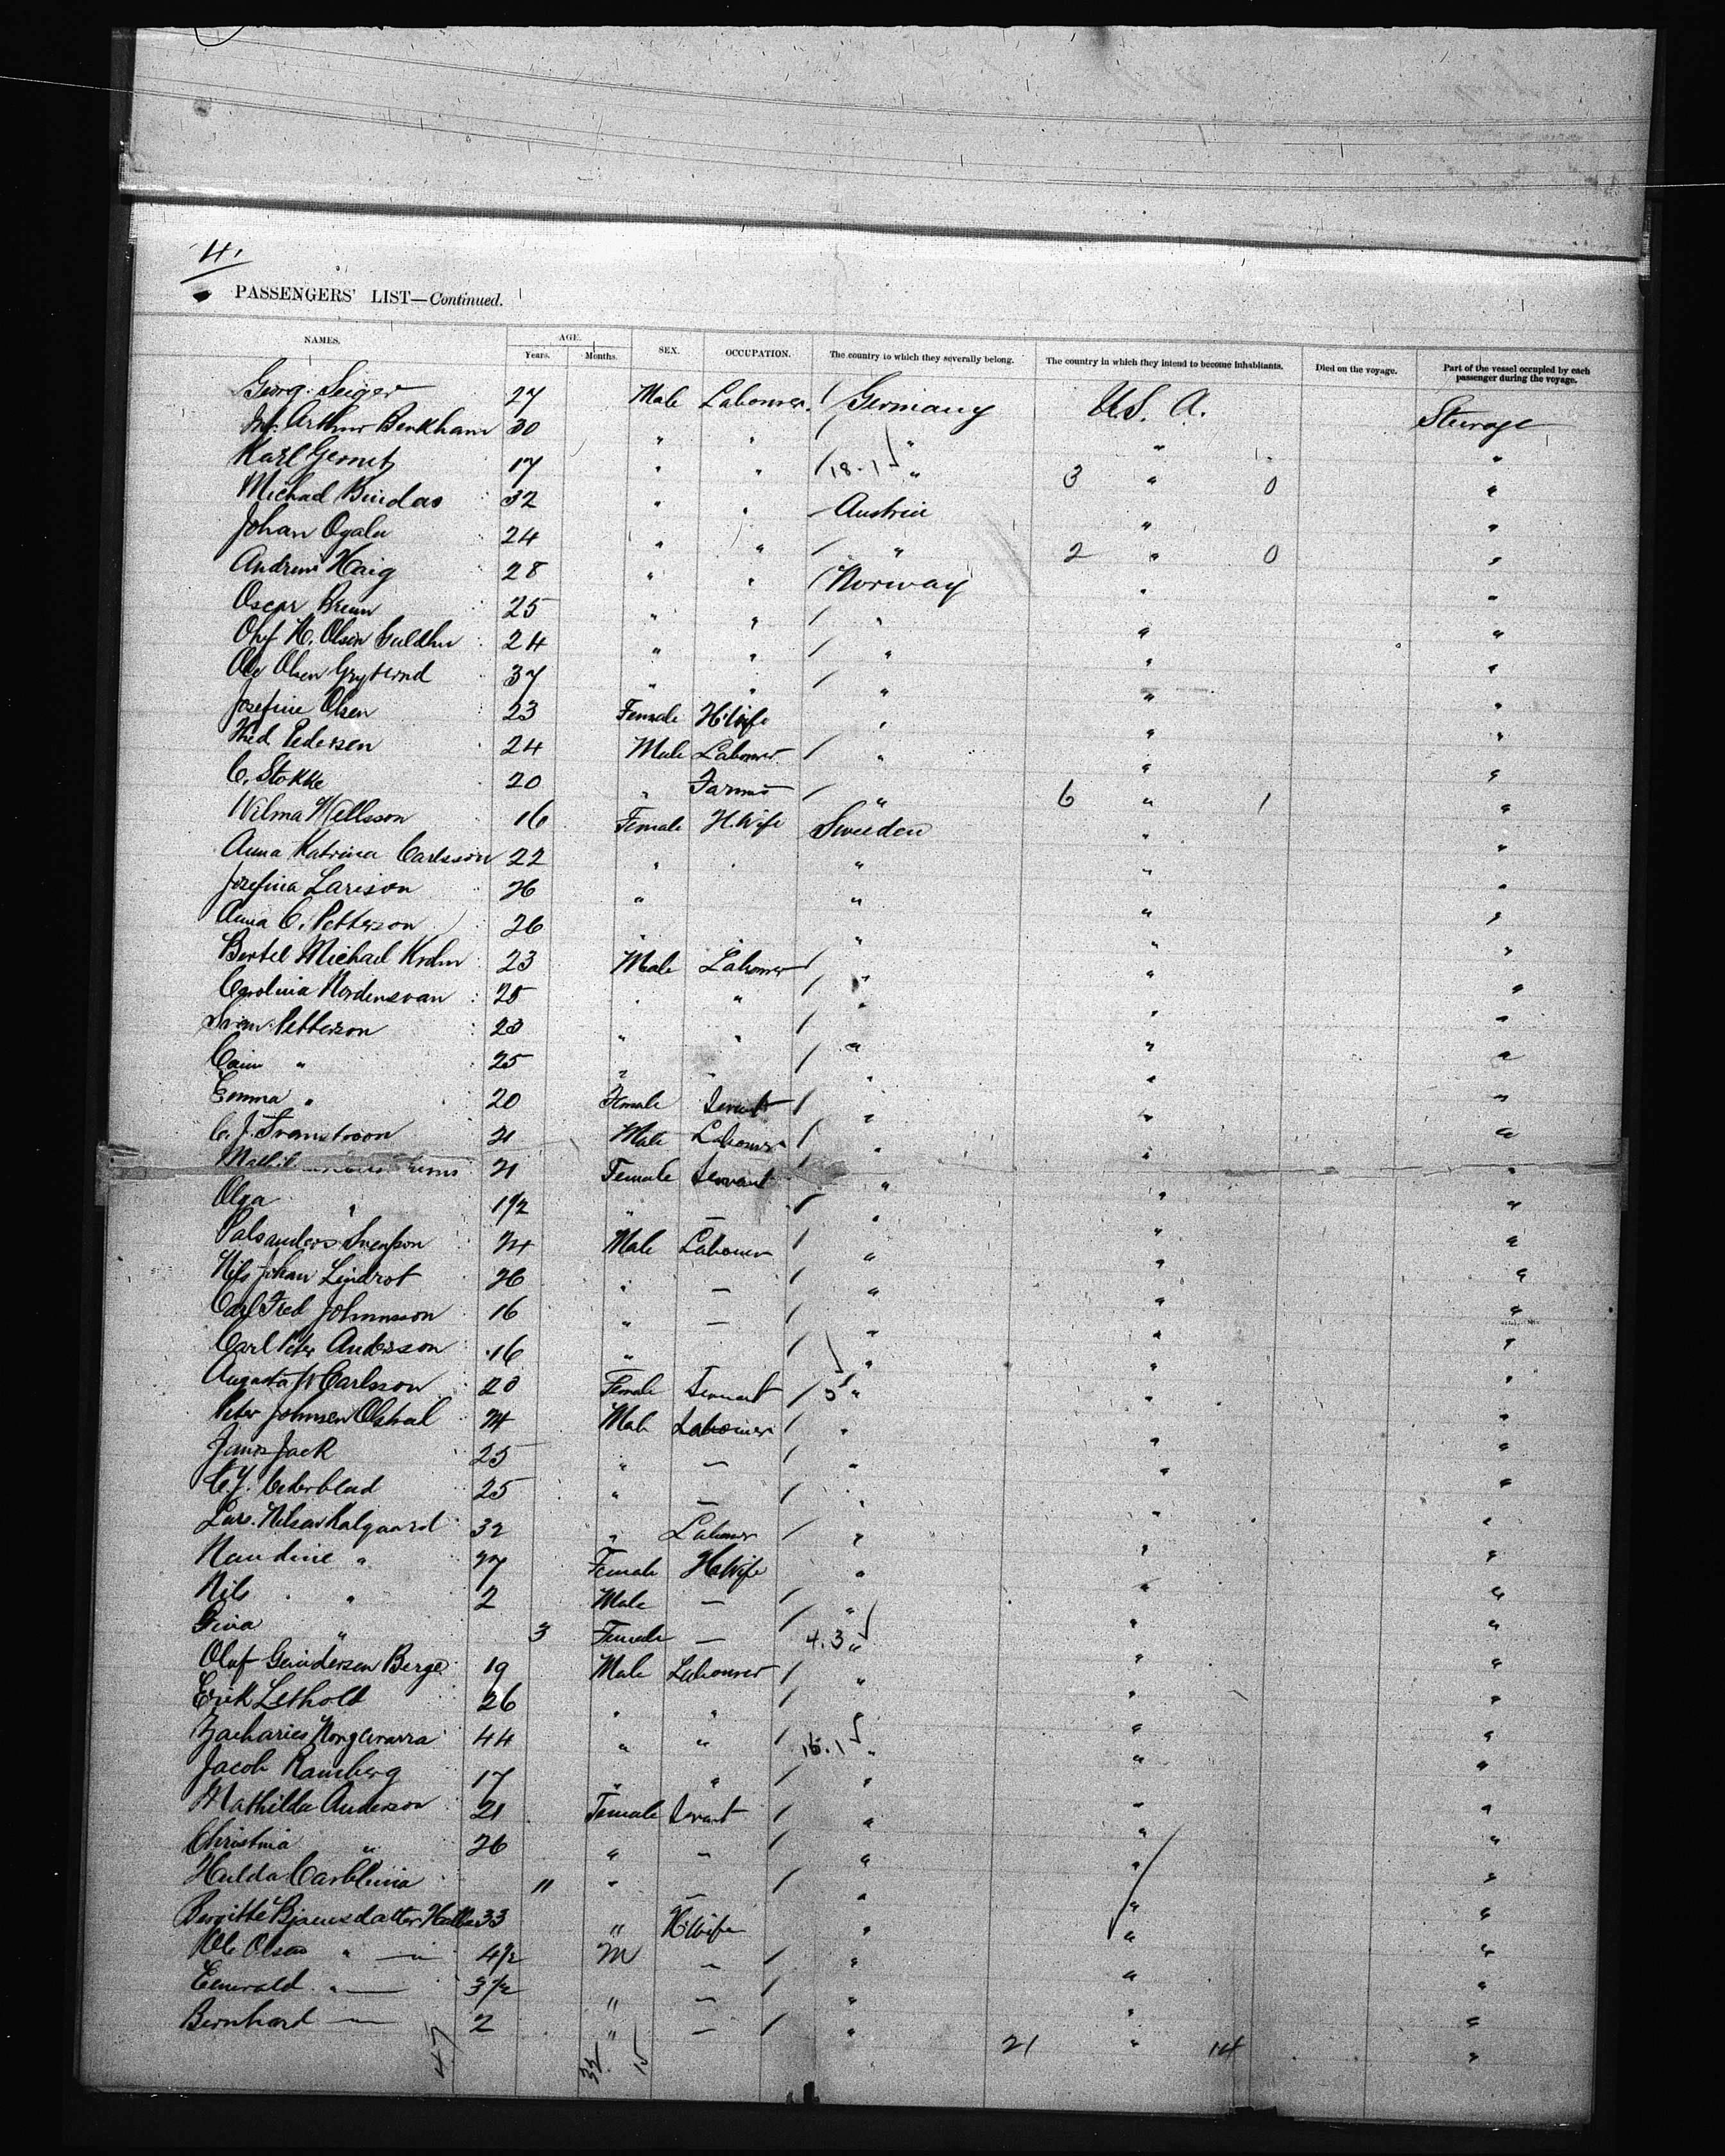 4.
PASSENGERS' LIST—Continued.
NAMES. AGE. Years. Months. SEX. OCCUPATION. The country to which they severally belong. The country in which they intend to become inhabitants. Died on the voyage. Part of the vessel occupied by each passenger during the voyage.
Georg Seiger 27 Male Labourer Germany U.S.A. Steerage
Arthur Benkham 30 " " " " "
Karl 17 " " 18-1 " 3 " 0 "
Michael Bindas 32 " " Austria " "
Johan Ogalu 24 " " " 2 " 0 "
Andrew Haig 28 " " Norway " "
Oscar Breun 25 " " " " "
Olaf H. Olsen 24 " " " " "
Ole Olsen 37 " " " " "
Josefine Olsen 23 Female H.Wife " " "
Pedersen 24 Male Labourer " " "
C. Stokke 20 " Farmer " 6 " 1 "
Wilma Mellsson 16 Female H.Wife Sweden " "
Anna Katrina Carlsson 22 " " " " "
Josefina Larison 26 " " " "
Anna C. Petterson 26 " " " " "
Bertel Michael Krohn 23 Male Labourer " " "
Carolina Nordensvan 25 " " " " "
Sven Petterson 23 " " " " "
" 25 " " " " "
Emma " 20 Female Servant " " "
C. J. Svanstroon 21 Male Labourer " " "
21 Female Servant " " "
Olga " 1 1/2 " — " " "
Pals anders Svensson 24 Male Labourer " " "
Nils Johan Lindrot 26 " — " " "
Carl Fred Johnnsson 16 " — " " "
Carl Peter Andersson 16 " " " "
Augusta Carlsson 20 Female Servant " " "
Peter Johnsen 24 Male Labourer " " "
Jack 25 " — " " "
C. J. Cederblad 25 " — " " "
Lars Nilsen Kalgaard 32 " Labourer " " "
Naudine " 27 Female H.Wife " " "
Nils " 2 Male — " " "
Gina " 3 Female — 4.3 " " "
Olaf Gundersen Berge 19 Male Labourer " " "
Erik Lethold 26 " " " " "
Zacharies 44 " " 16.1 " " "
Jacob Ramberg 17 " " " " "
Mathilda Anderson 21 Female Servant " " "
Christina " 26 " — " " "
Hulda Carolina 11 " — " " "
Bergitte Bjarnsdatter 33 " H.Wife " " "
Ole Olsen " 4 1/2 M — " " "
Emerald " 3 1/2 " — " " "
Bernhard — 2 " — " " "
47 32 15 21 " 14 "